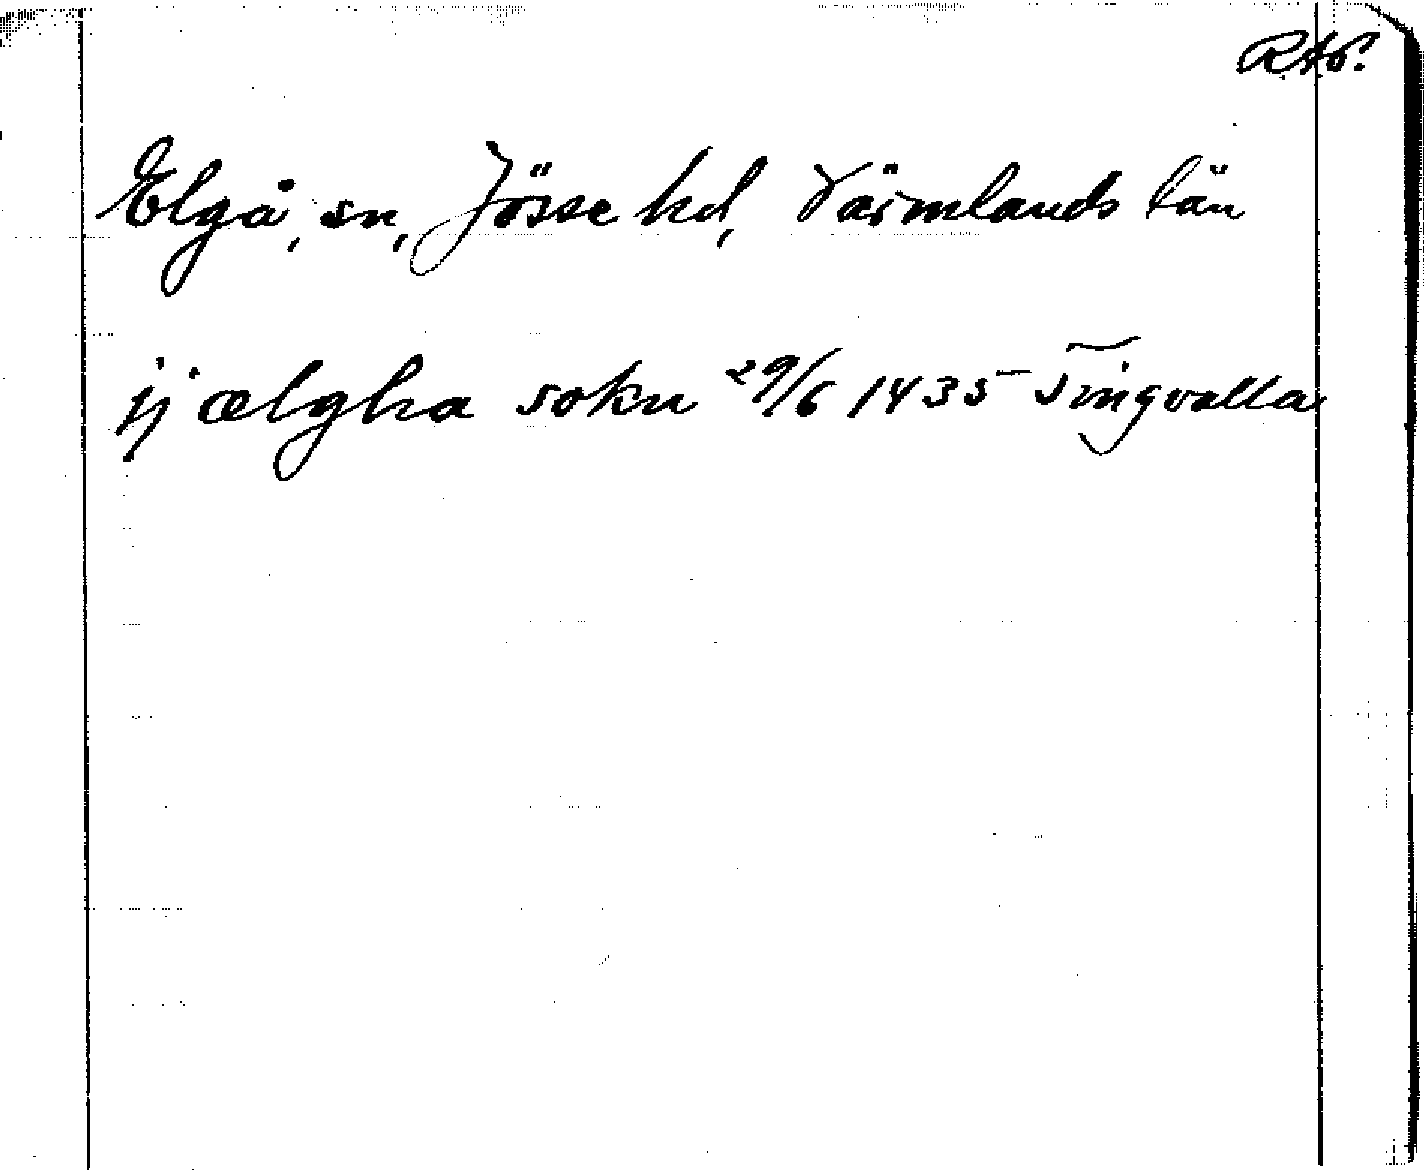 RAp.
Elgå, sn, Jösse hd, Värmlands län
ij ælgha sokn 29/6 1435 Tingvalla